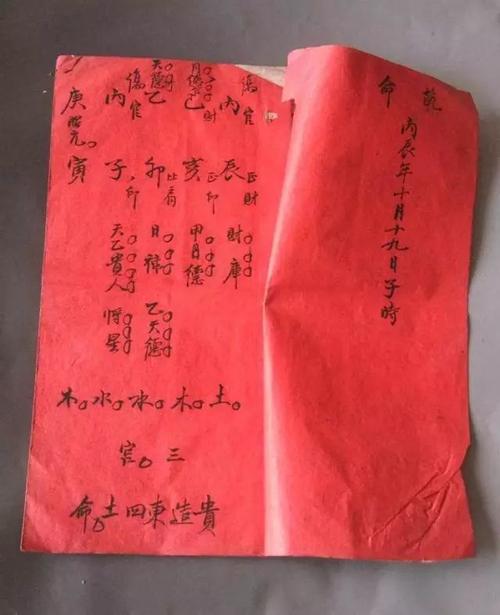 乾命
丙辰年十月十九日子時
傷官
丙辰
正財
財庫
月德
財
己亥
正印
甲月德
天德
乙卯
比肩
日祿
乙天德
傷官
丙子
印
天乙貴人
將星
庚寅
胎元
土木水水木
三宮
貴造東四土命